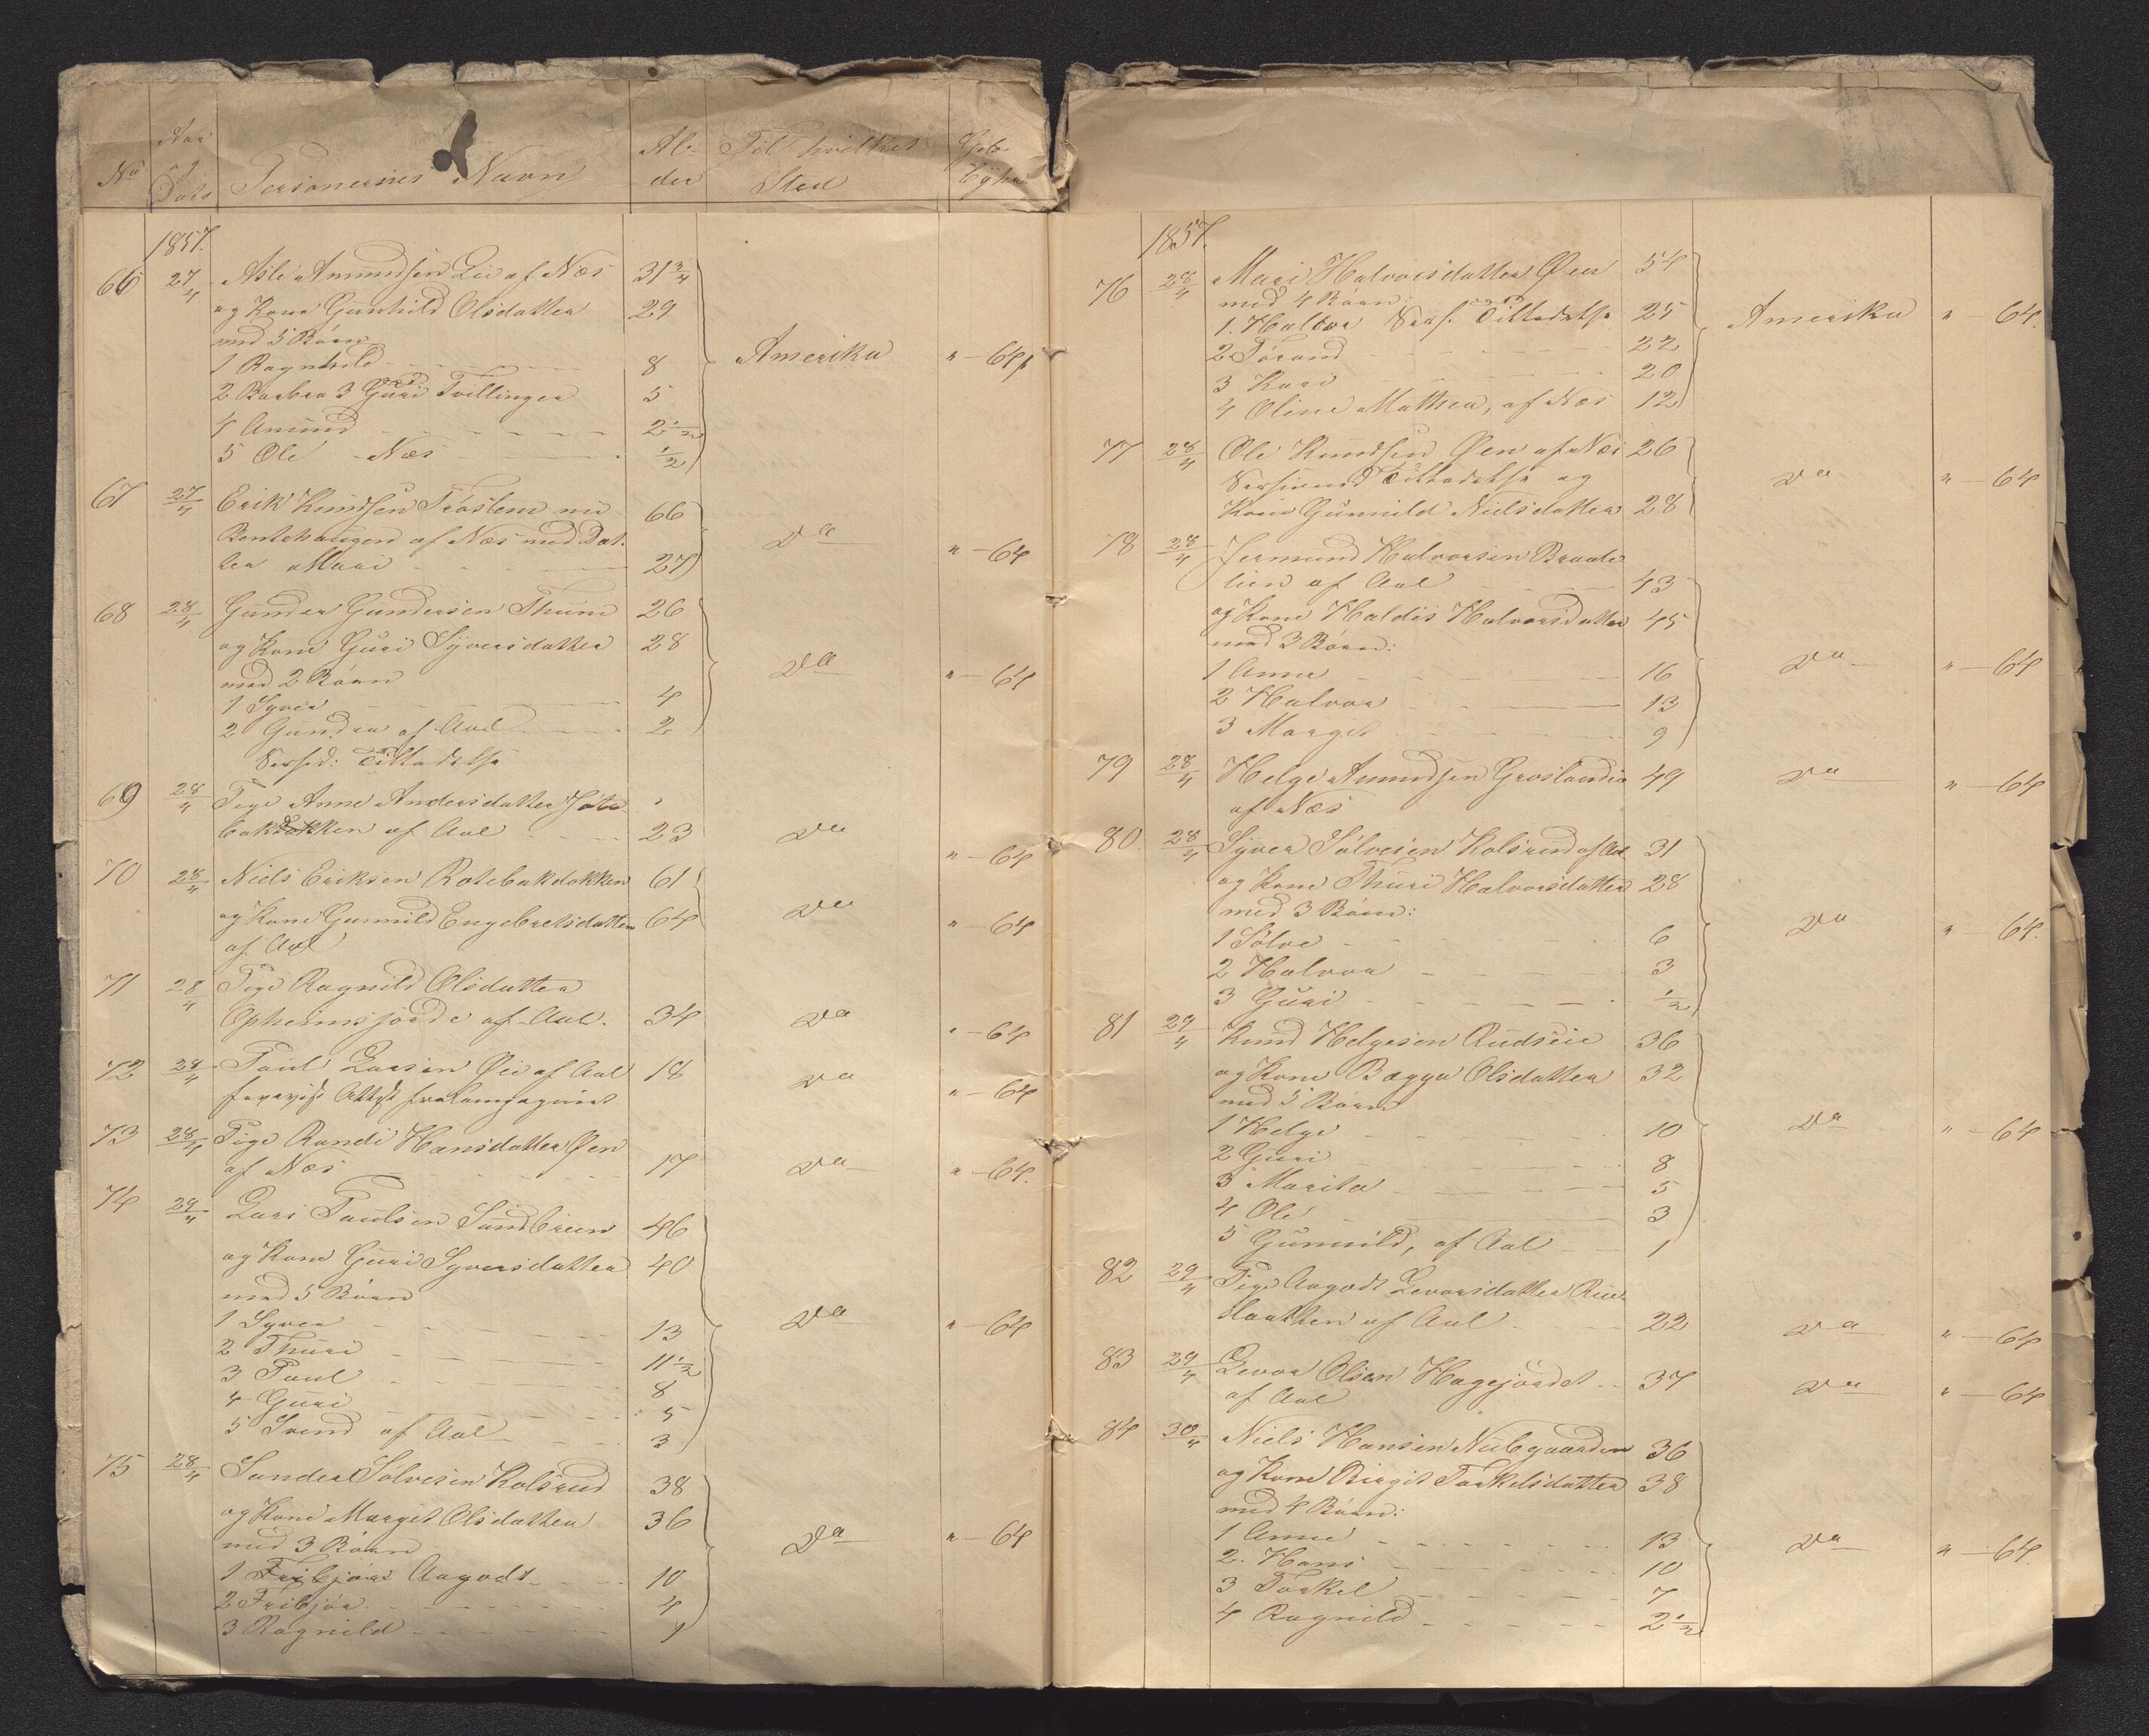 No
Aar
og
Dato
Personernes Navn
Al-
der
Til hvilket
Sted
Geb
1857.
66 27/4 Asle Amundsen Lie af Næs 31 3/4
og Kone Gunhild Olsdatter 29
med 5 Børn
1 Ragnhild 8 Amerika " - 64
2 Barbra 3 Guri Tvillinger 5
4 Amund 2 1/2
5 Ole - Næs 1/2
67 27/4 Erik Knudsen Trøstem nu 66
Bentehaugen af Næs med Dat-
ter Mari 27 Do " - 64
68 28/4 Gunder Gundersen Thune 26
og Kone Guri Syversdatter 28
med 2 Børn Do " - 64
1 Syver 4
2 Gunder af Aal 2
69 28/4 Pige Anne Andersdatter
af Aal 23 Do " - 64
70 28/4 Niels Eriksen Rotebakdokken 61
og Kone Gunnild Engebretsdatter 64 Do " - 64
af Aal
71 28/4 Pige Ragnild Olsdatter
Opheimsjorde af Aal. 34 Do " - 64
72 28/4 Paul Larsen Øie af Aal 18 Do " - 64
forevist Attest
73 28/4 Pige Randi Hansdatter Øen
af Næs 17 Do " - 64.
74 29/4 Lars Paulsen Sundbreen 46
og Kone Guri Syversdatter 40
med 5 Børn
1 Syver 13 Do " - 64
2 Thuri 11 1/2
3 Paul 8
4 Guri 5
5 Svend af Aal 3
75 28/4 Sander Sølvesen Kolsrud 38
og Kone Margit Olsdatter 36
med 3 Børn Do " - 64
1 Aagodt 10
2 Fribjør 4
3 Ragnild 1
1857.
76 28/4 Mari Halvorsdatter Øen 54
med 4 Børn:
1. Halvor 25 Amerika " - 64.
2 Torand 22
3 Kari 20
4 Oline Mathea, af Næs 12
77 28/4 Ole Knudsen Øen af Næs 26
og Do " - 64
Kone Gunnild Nielsdatter 28
78 28/4 Jermund Halvorsen Braate
lien af Aal 43
og Kone Haldis Halvorsdatter 45
med 3 Børn:
1 Anne 16 Do " - 64
2 Halvor 13
3 Margit 9
79 28/4 Helge Amundsen Groslandie 49 Do " - 64
af Næs
80. 28/4 Syver Sølvesen Kolsrud af Aal 31
og Kone Thuri Halvorsdatter 28
med 3 Børn:
1 Sølve 6 Do " - 64.
2 Halvor 3
3 Guri 1/2
81 29/4 Knud Helgesen Rudseie 36
og Kone Bægga Olsdatter 32
med 5 Børn
1 Helge 10 Do " - 64
2 Guri 8
3 Marita 5
4 Ole 3
5 Gunnild, af Aal 1
82 29/4 Pige Aagodt Levorsdatter Rue-
slaatten af Aal 22 Do " - 64
83 29/4 Levor Olsen Hagejordet 37 Do " - 64
af Aal
84 30/4 Niels Hansen Nubgaarden 36
og Kone Birgit Torkelsdatter 38
med 4 Børn:
1 Anne 13 Do " - 64.
2. Hans 10
3 Torkel 7
4 Ragnild 2 1/2